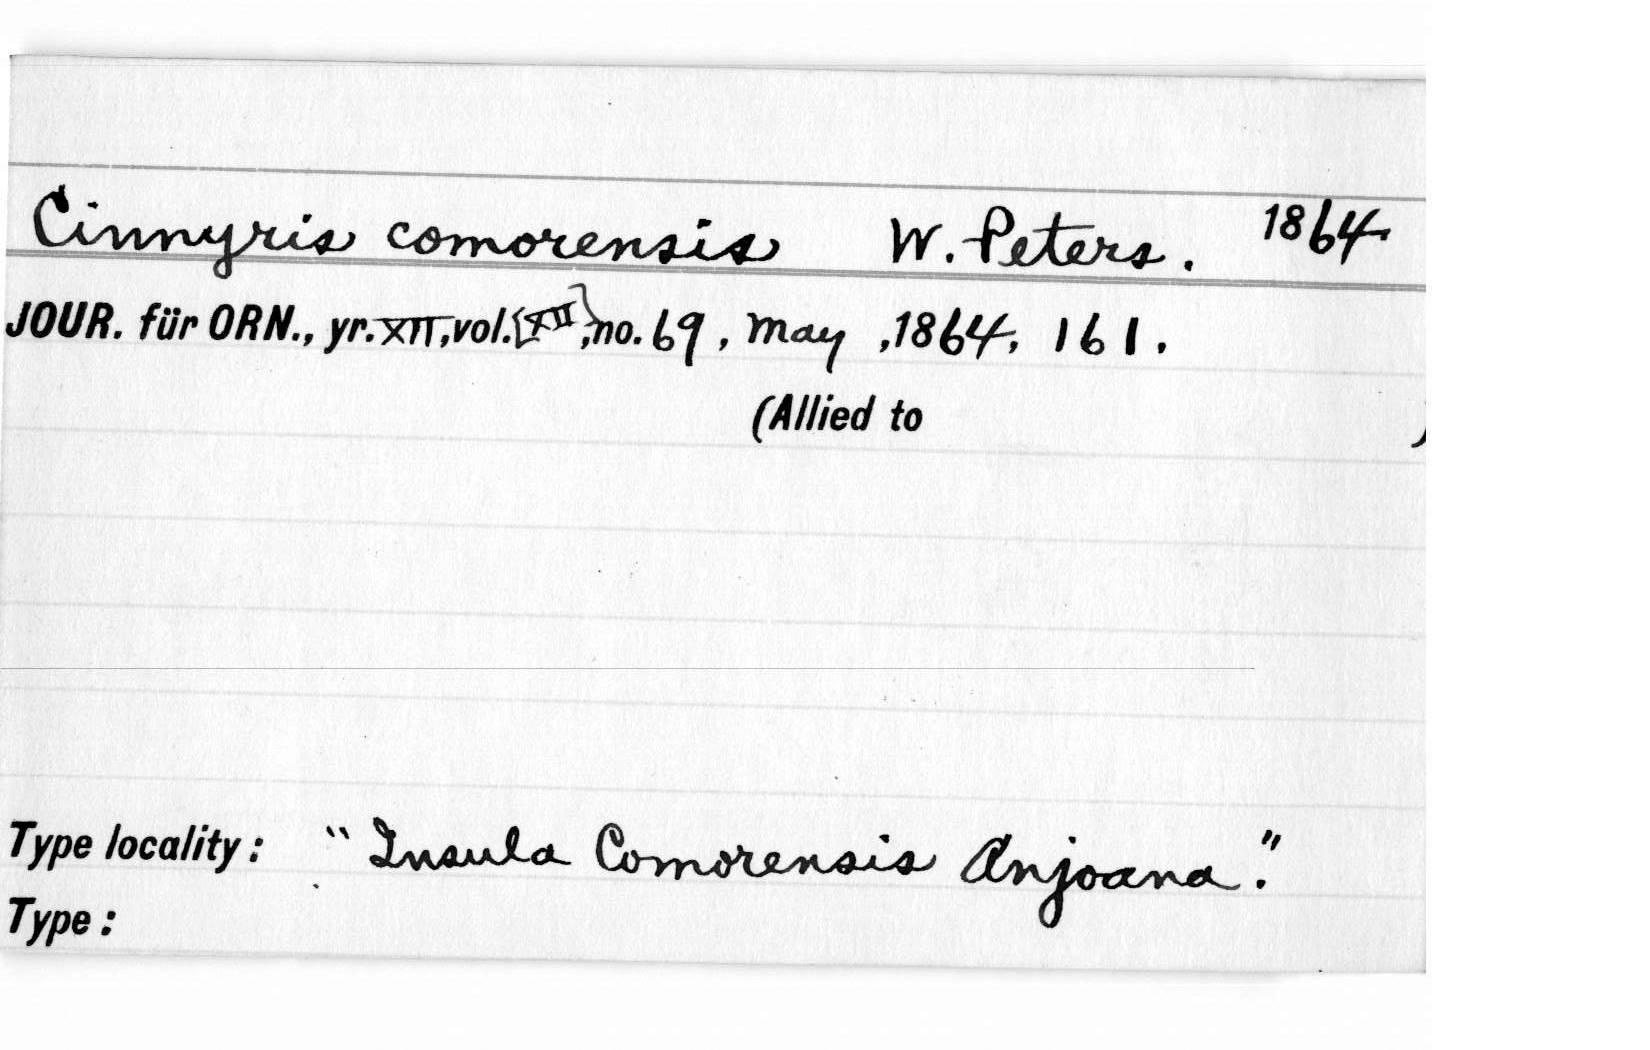 Cinnyris comorensis W. Peters. 1864.
JOUR. für ORN., yr. XII, vol. [XII], no. 69, May, 1864, 161.
(Allied to )
Type locality: "Insula Comorensis Anjoana."
Type: